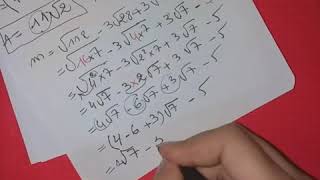 A = 11√2
m = √112 - 3√28 + 3√
= √16×7 - 3√4×7 + 3√7 - 5
= √4²×7 - 3√2²×7 + 3√7 - 5
= 4√7 - 3×2√7 + 3√7 - 5
= 4√7 - 6√7 + 3√7 - 5
= (4 - 6 + 3)√7 - 5
= √7 -